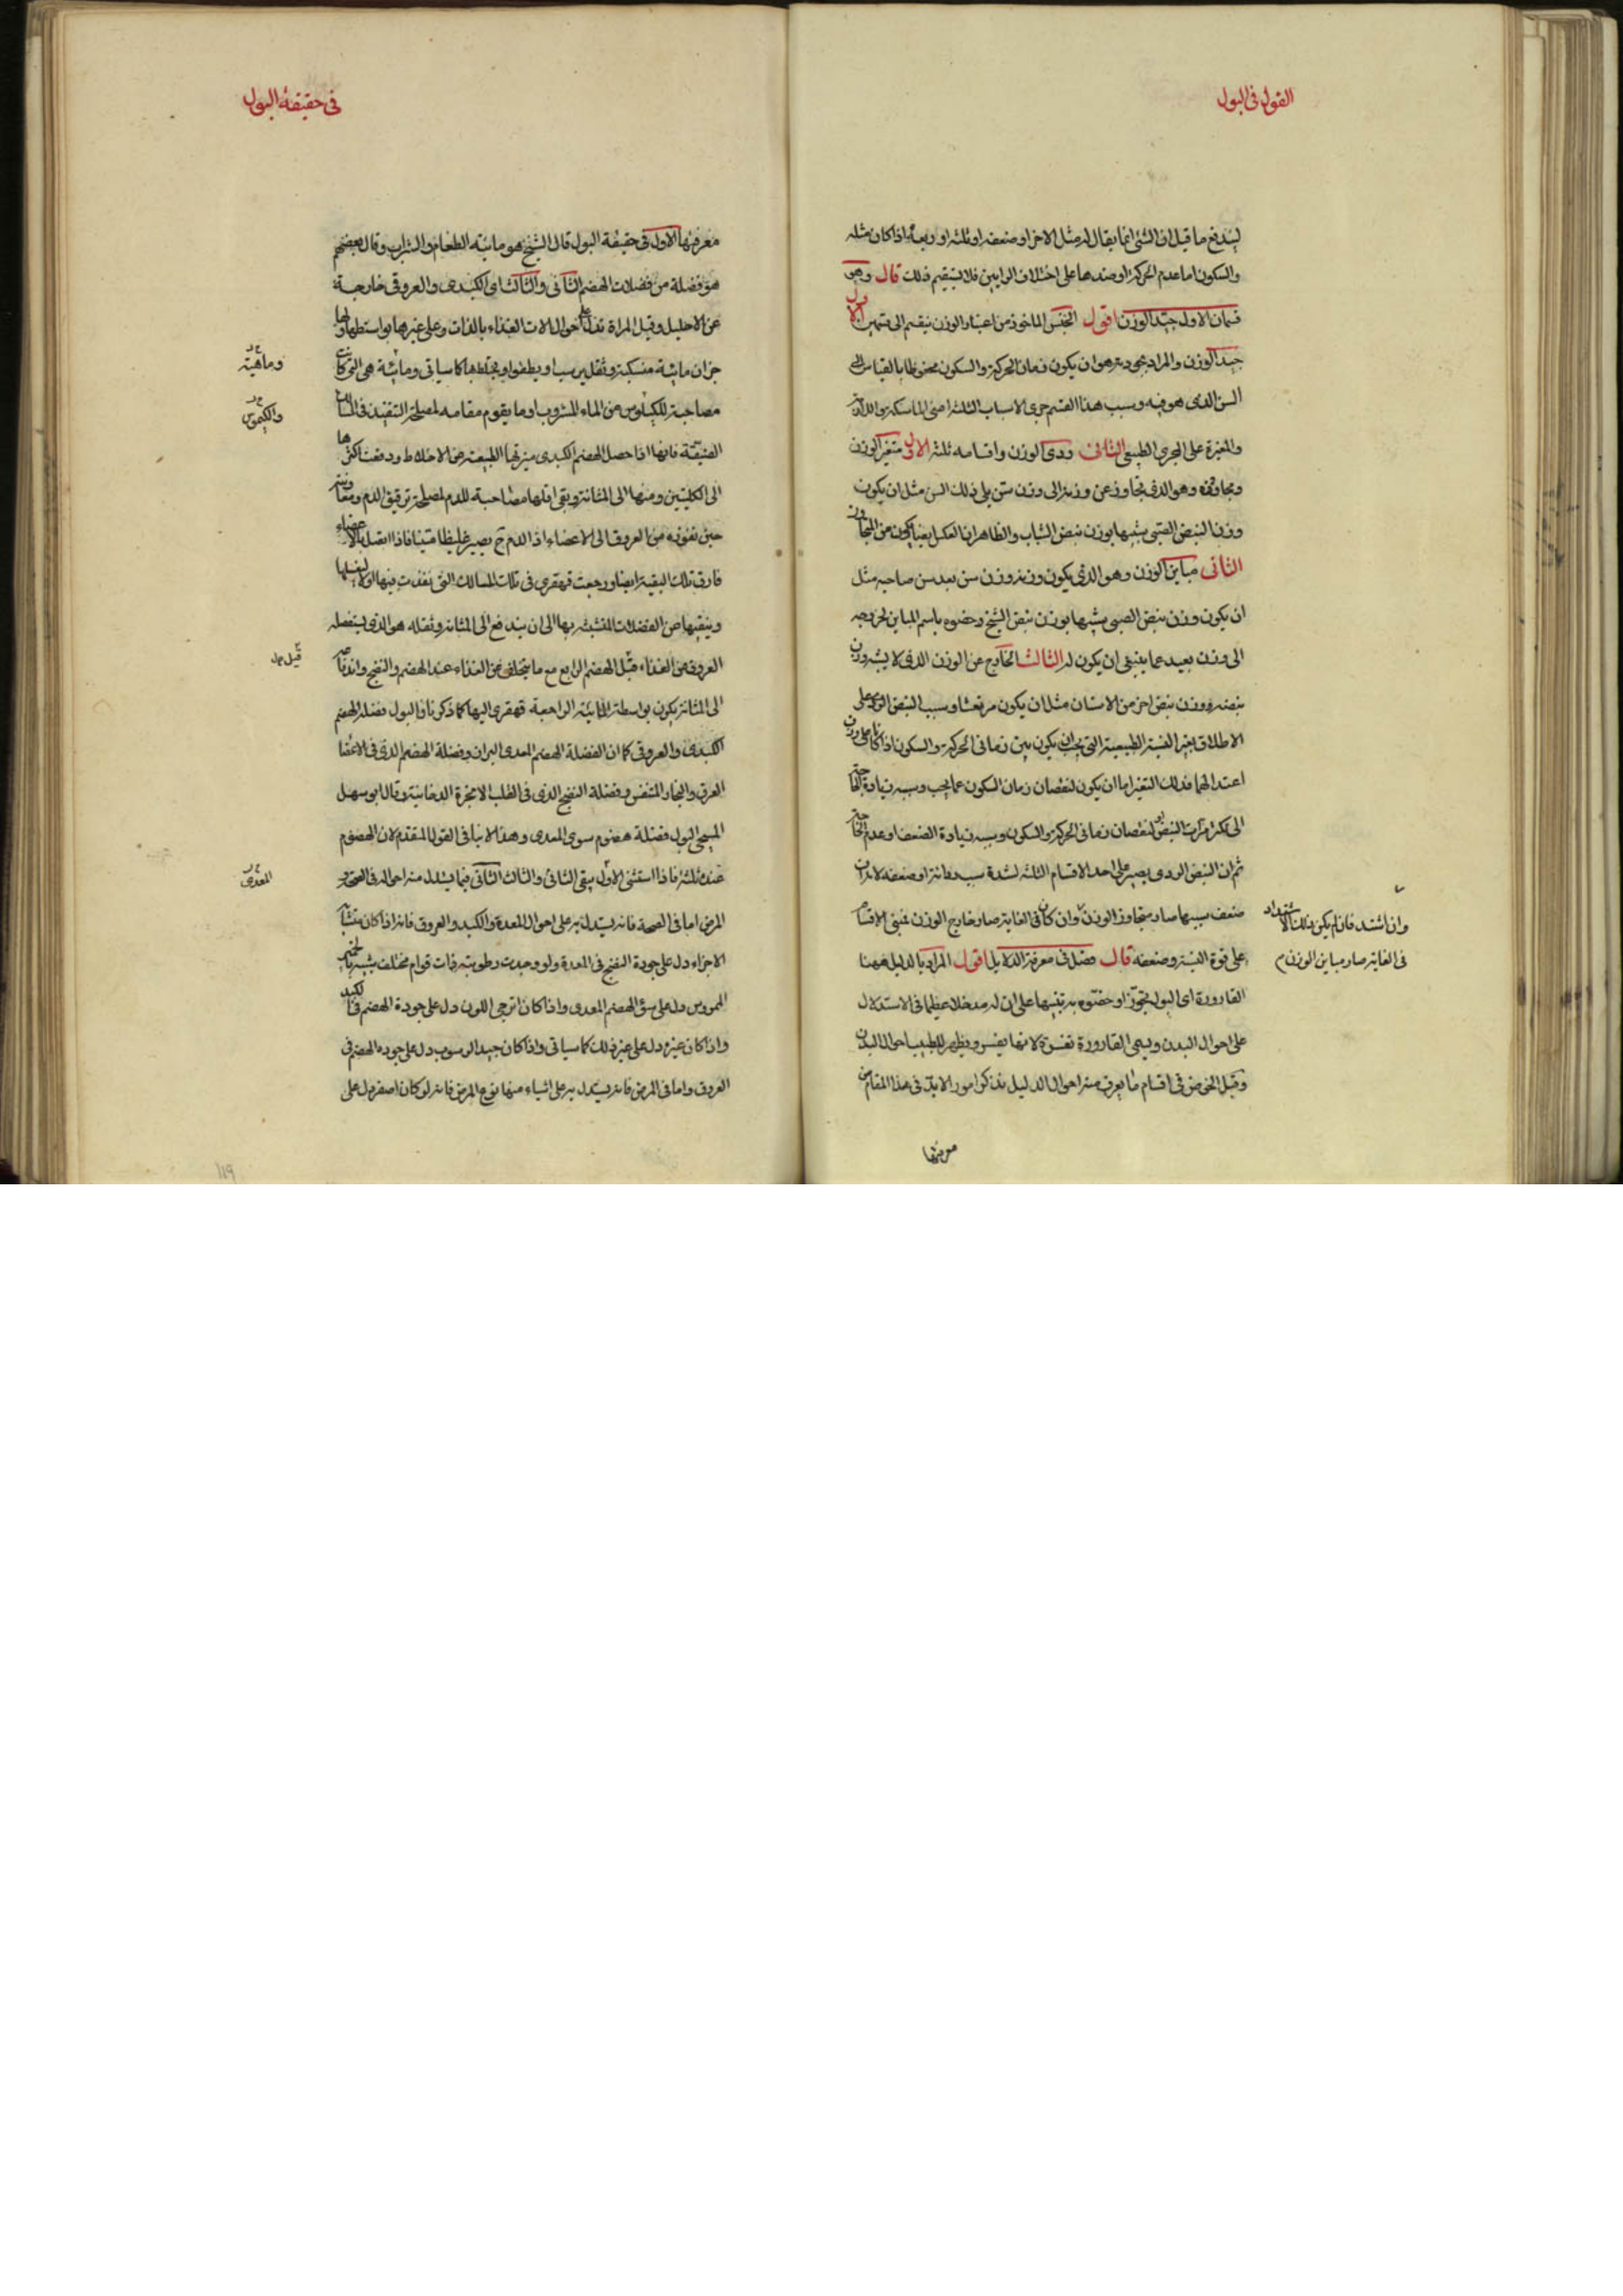 القول فى البول
ليندفع ما قيل ان الشئ انما يقال له مثل الاخر او ضعفه او ثلثه او ربعه اذا كان مثله
والسكون اما عدم الحركة او ضدها على اختلاف الرايين فلا يستقيم ذلك قال وهو
قسمان الاول جيد الوزن اقول الجنس الماخوذ من اعتبار الوزن ينقسم الى قسمين الاول
جيد الوزن والمراد بجودته هو ان يكون زمان الحركة والسكون محفوظا بالقياس الى
السن الذى هو فيه وسبب هذا القسم جرى الاسباب الثلثة اعنى الماسكة والالة
والمغيرة على المجرى الطبيعى الثانى ردى الوزن واقسامه ثلثة الاول متغير الوزن
ومجاوزه وهو الذى يتجاوز عن وزنه الى وزن سن يلى ذلك السن مثل ان يكون
وزن النبض الصبى شبيها بوزن نبض الشباب والظاهر ان العكس ايضا يكون من المجاوز
الثانى مباين الوزن وهو الذى يكون وزنه وزن سن بعد سن صاحبه مثل
ان يكون وزن نبض الصبى شبيها بوزن نبض الشيخ وخصوه باسم المباين لخروجه
الى وزن بعيد عما ينبغى ان يكون له الثالث الخارج عن الوزن الذى لا يشبه وزن
نبضه وزن نبض اخر من الاسنان مثل ان يكون مرتعشا وسبب النبض الردى على
الاطلاق تغير النسبة الطبيعية التى يجب ان يكون بين زمانى الحركة والسكون اذا كانا على وزن
اعتدالهما فذلك التغير اما ان يكون لنقصان زمان السكون عما يجب وسببه زيادة الحاجة
الى تكثر مرات النبض او لنقصان زمانى الحركة والسكون وسببه زيادة الضعف او عدم الحاجة
ثم ان النبض الردى يصير على احد الاقسام الثلثة لشدة سبب رداءته او ضعفه لانه ان
ضعف سببها صار متجاوز الوزن وان كان فى الغاية صار خارج الوزن فتبنى الاقسام
على قوة النسبة وضعفه قال فصل فى معرفة الدلايل اقول المراد بالدليل ههنا
القارورة اى البول تجوزا وخصوه به تنبيها على ان له مدخلا عظيما فى الاستدلال
على احوال البدن ويسمى القارورة تفسرة لانها يفسر ويظهر للطبيب احوال البدن
وقبل الخوض فى اقسام ما يعرف منه احوال الدليل نذكر امورا لا بد فى هذا المقام من
معرفتها
وان اشتد فان لم يكن ذلك الاشتداد
فى الغاية صار مباين الوزن م
فى حقيقة البول
معرفتها الاول فى حقيقة البول قال الشيخ هو مائية الطعام والشراب وقال بعضهم
هو فضلة من فضلات الهضم الثانى والثالث اى الكبدى والعروقى خارجة
عن الاحليل وقبل المراة تدل على احوال الات الغذاء بالذات وعلى غيرها بواسطتها ولها
جزان مائية منسكبة وثقل يرسب او يطفو او يختلط بها كما سياتى ومائيته هى التى كانت
مصاحبة للكيلوس من الماء المشروب او ما يقوم مقامه لمصلحة التنفيذ فى المسالك
الضيقة فانها اذا حصل الهضم الكبدى ميزتها الطبيعة من الاخلاط ودفعت اكثرها
الى الكليتين ومنها الى المثانة ويبقى اقلها مصاحبة للدم لمصلحة ترقيق الدم ومعاونته
حين نفوذه من العروق الى الاعضاء اذ الدم ح يصير غليظا متينا فاذا اتصل بالاعضاء
فارق تلك البقية ايضا ورجعت قهقرى فى تلك المسالك التى نفذت فيها اولا ليغسلها
وينقيها من الفضلات المتشبثة بها الى ان يندفع الى المثانة وثقله هو الذى يستفضله
العروق من الغذاء قبل الهضم الرابع مع ما يتخلف عن الغذاء عند الهضم والنضج واندفاعه
الى المثانة يكون بواسطة المائية الراجعة قهقرى اليها كما ذكرنا فالبول فضلة الهضم
الكبدى والعروقى كما ان الفضلة الهضم المعدى البراز وفضلة الهضم الذى فى الاعضا
العرق والبخار المتنفس وفضلة النضج الذى فى القلب الابخرة الدخانية وقال ابو سهل
المسيحى البول فضلة هضوم سوى المعدى وهذا لا ينافى القول المتقدم لان الهضوم
عنده ثلثة فاذا استثنى الاول يبقى الثانى والثالث الثانى فيما يستدل منه احواله فى الصحة و
المرض اما فى الصحة فانه يستدل به على احوال المعدة والكبد والعروق فانه اذا كان متشابه
الاجزاء دل على جودة النضج فى المعدة ولو وجدت رطوبته ذات قوام مختلف يشبه بالخمير
الممروس دل على سوء الهضم المعدى واذا كان اترجى اللون دل على جودة الهضم فى الكبد
واذا كان غيره دل على غير ذلك كما سياتى واذا كان جيد الرسوب دل على جودة الهضم فى
العروق واما فى المرض فانه يستدل به على اشياء منها نوع المرض فانه لو كان اصفر دل على
وماهيته
والكيموس
المعدى
119